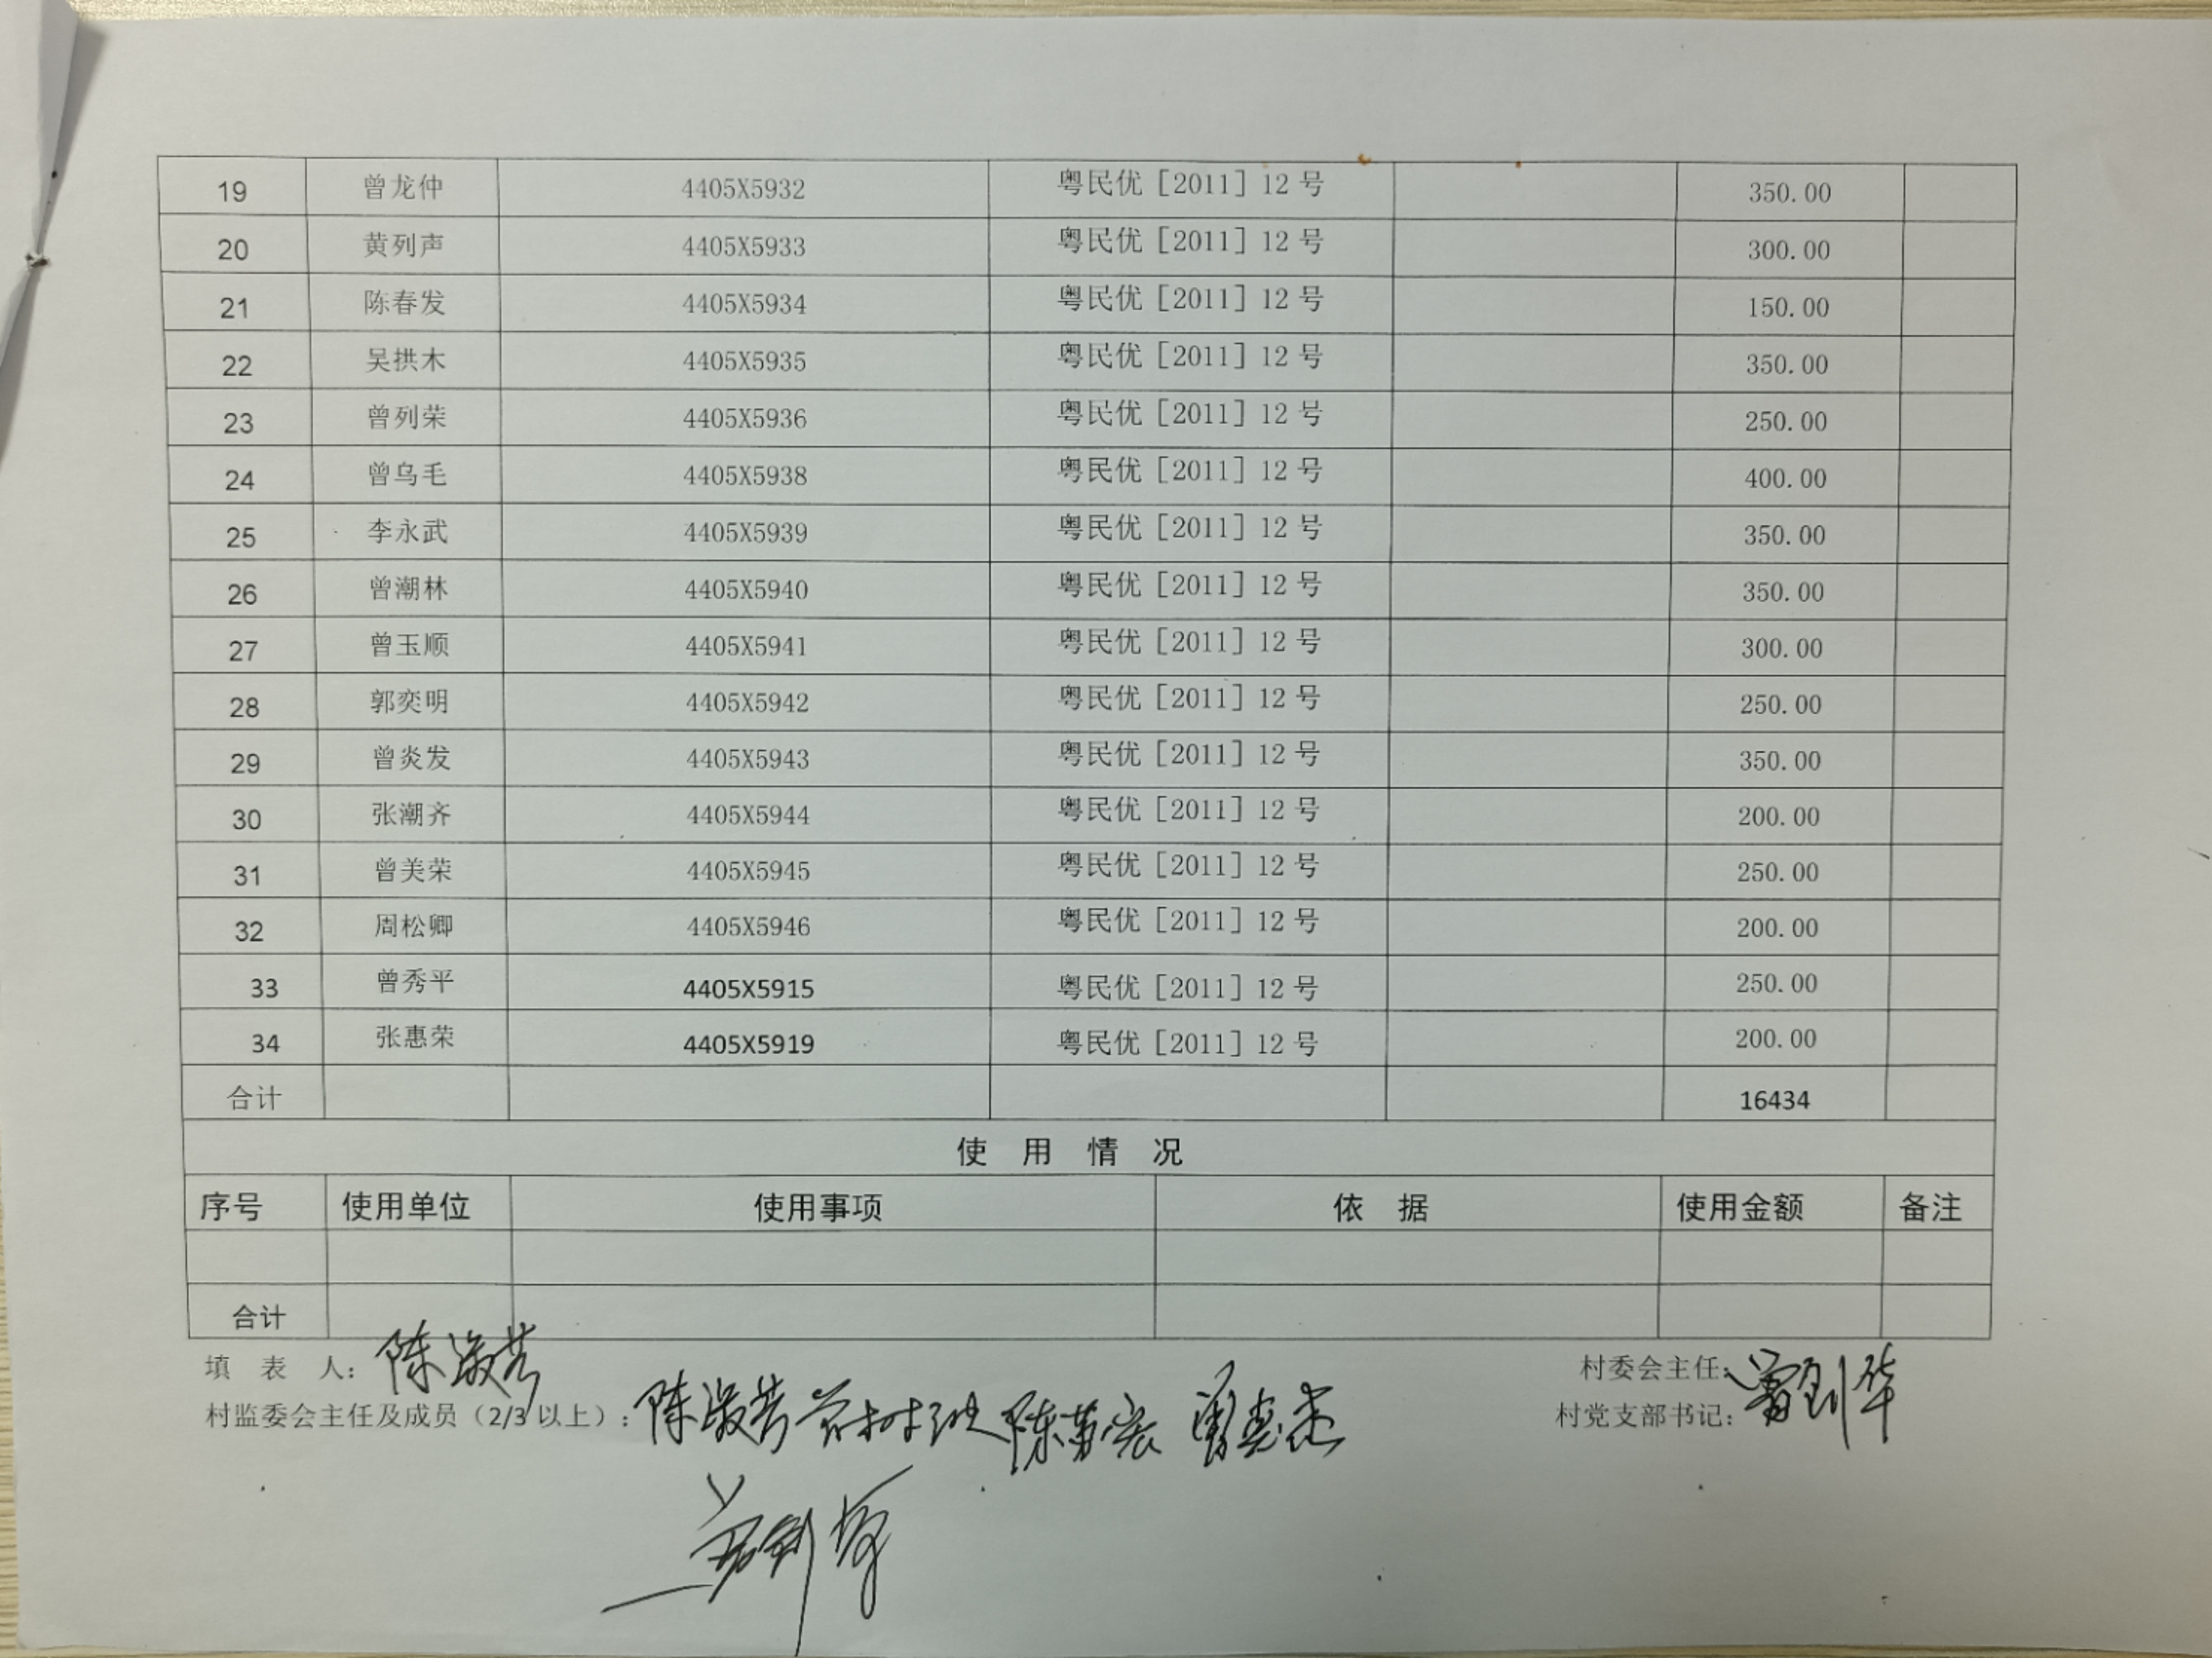 19 曾龙仲 4405X5932 粤民优［2011］12 号 350.00
20 黄列声 4405X5933 粤民优［2011］12 号 300.00
21 陈春发 4405X5934 粤民优［2011］12 号 150.00
22 吴拱木 4405X5935 粤民优［2011］12 号 350.00
23 曾列荣 4405X5936 粤民优［2011］12 号 250.00
24 曾乌毛 4405X5938 粤民优［2011］12 号 400.00
25 李永武 4405X5939 粤民优［2011］12 号 350.00
26 曾潮林 4405X5940 粤民优［2011］12 号 350.00
27 曾玉顺 4405X5941 粤民优［2011］12 号 300.00
28 郭奕明 4405X5942 粤民优［2011］12 号 250.00
29 曾炎发 4405X5943 粤民优［2011］12 号 350.00
30 张潮齐 4405X5944 粤民优［2011］12 号 200.00
31 曾美荣 4405X5945 粤民优［2011］12 号 250.00
32 周松卿 4405X5946 粤民优［2011］12 号 200.00
33 曾秀平 4405X5915 粤民优［2011］12 号 250.00
34 张惠荣 4405X5919 粤民优［2011］12 号 200.00
合计 16434
使 用 情 况
序号 使用单位 使用事项 依 据 使用金额 备注
合计
填 表 人：陈淑芳 村委会主任：
村监委会主任及成员（2/3 以上）：陈淑芳 村党支部书记：